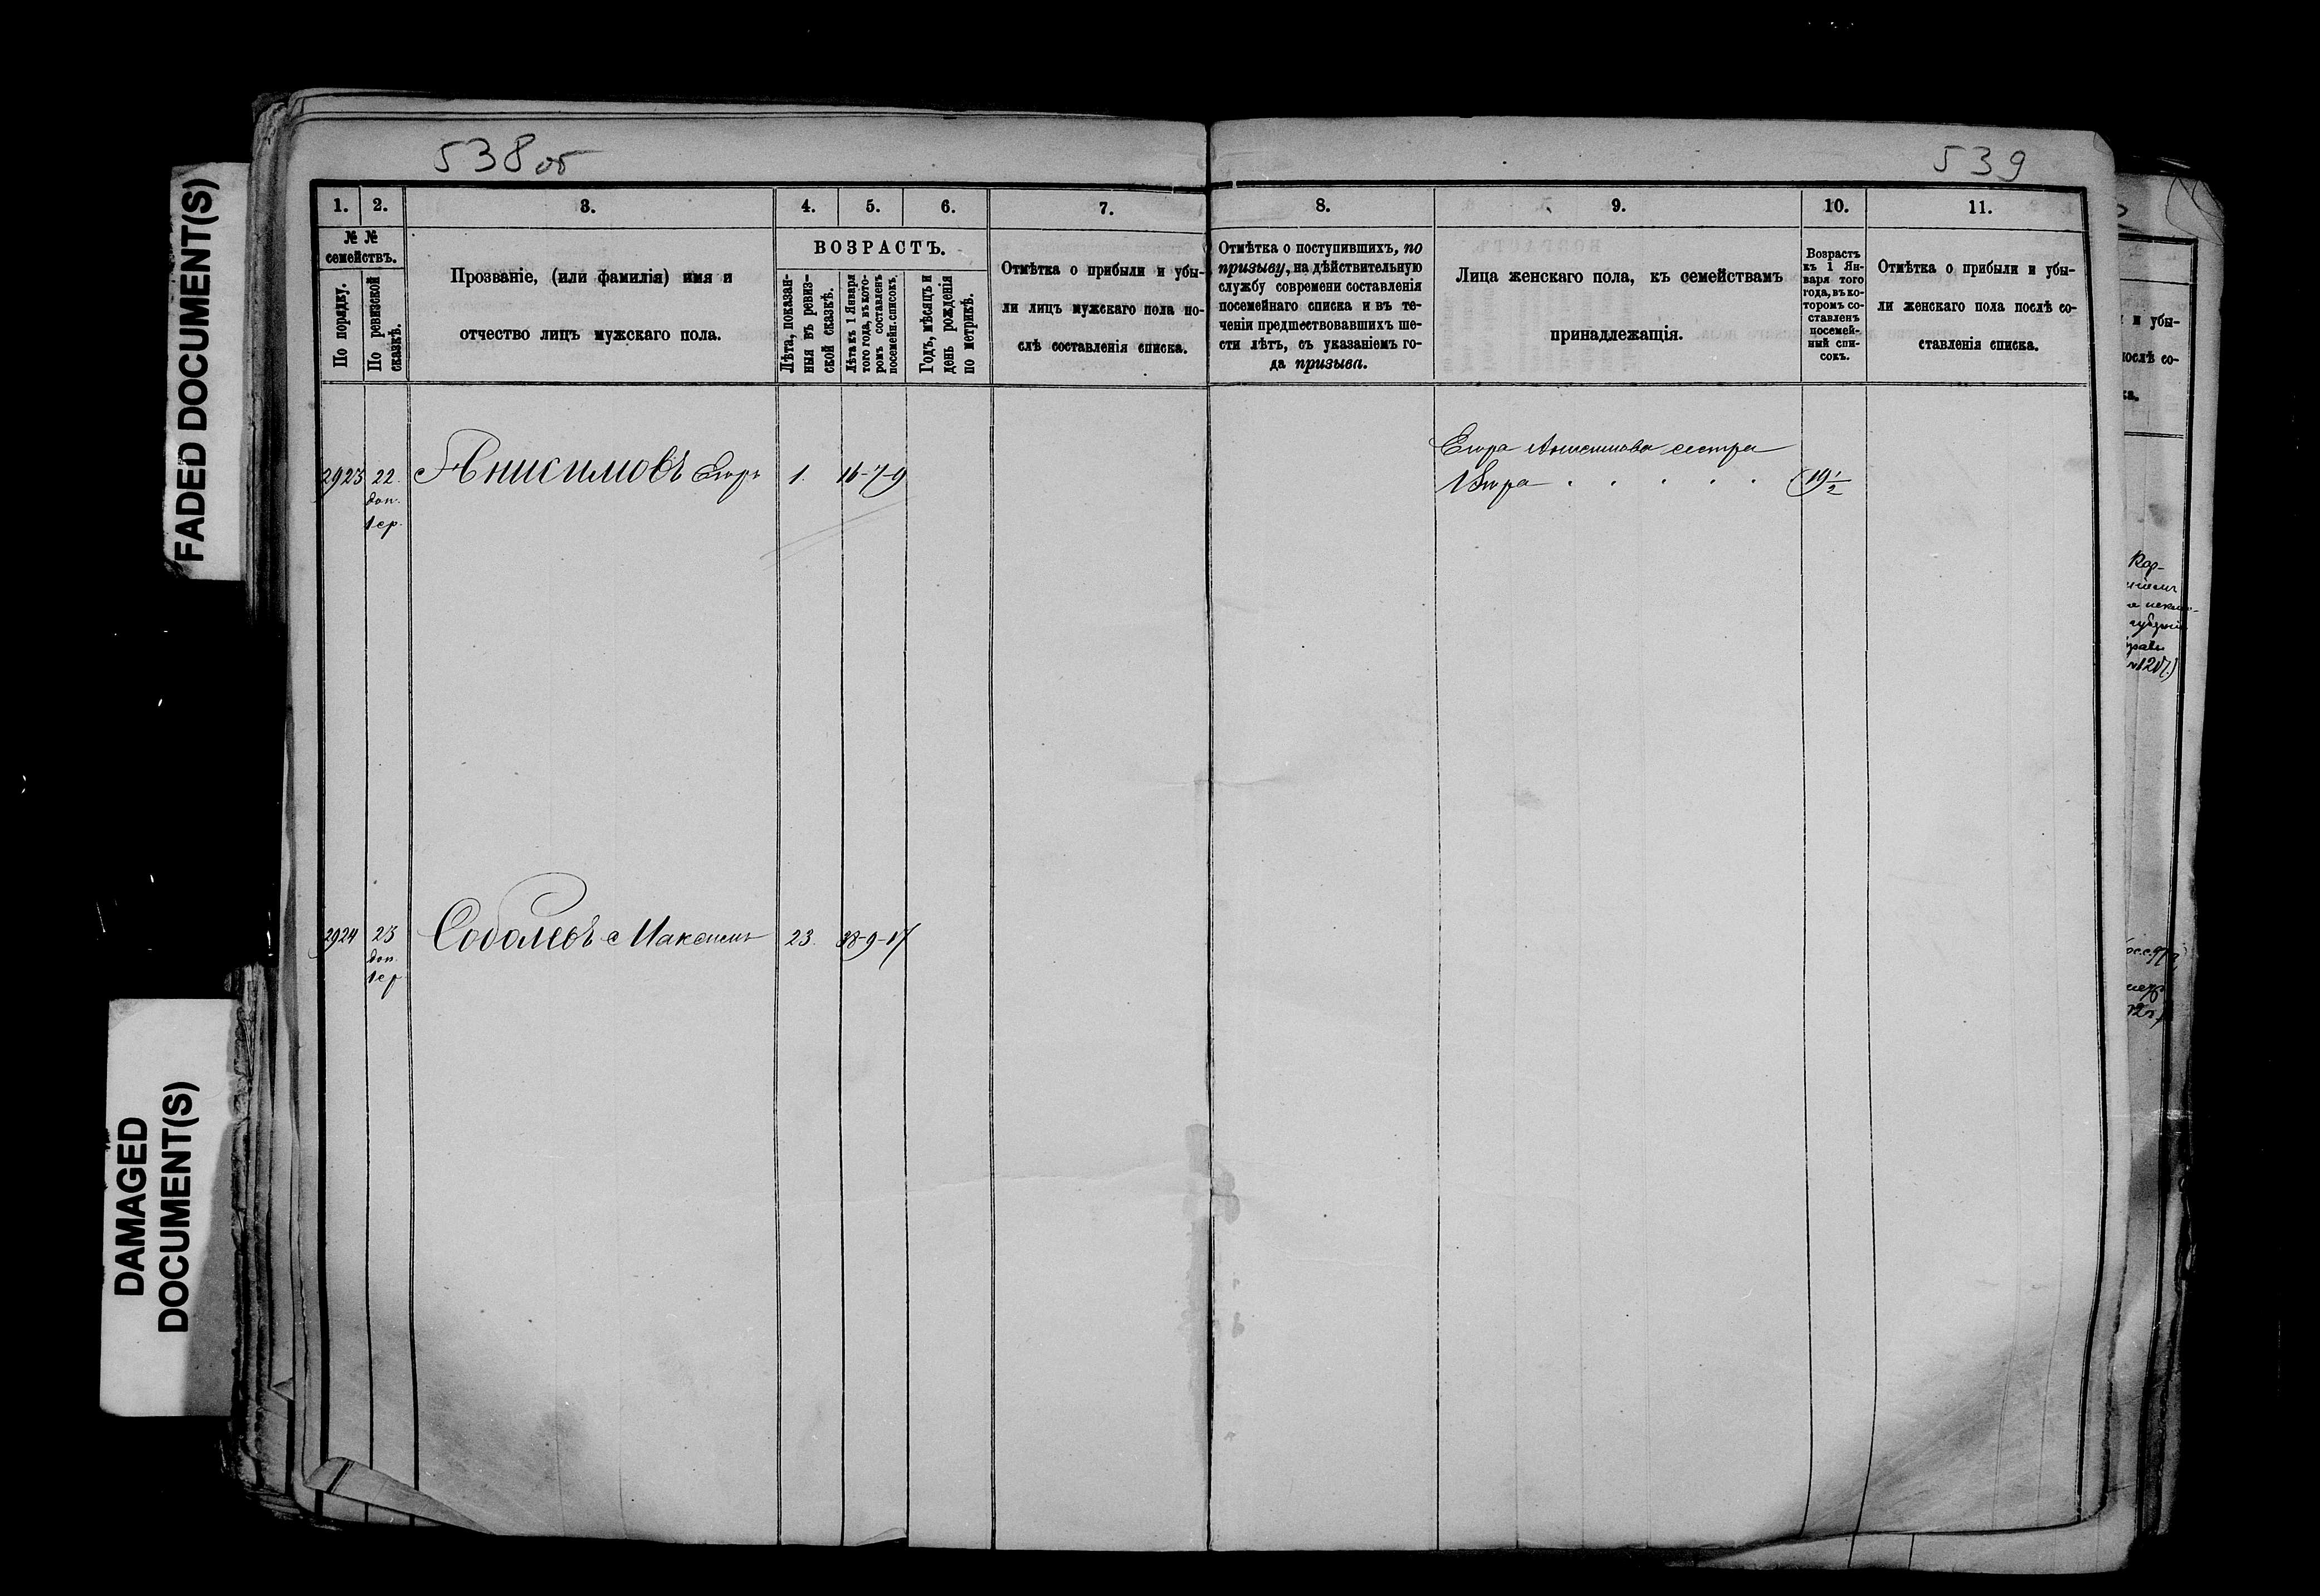 FADED DOCUMENT(S)
DAMAGED
DOCUMENT(S)
538 об
539
1. 2. 3. 4. 5. 6. 7. 8. 9. 10. 11.
№ №
семействъ.
По порядку.
По ревизской
сказкѣ.
Прозваніе, (или фамилія) имя и
отчество лицъ мужскаго пола.
ВОЗРАСТЪ.
Лѣта, показан-
ныя въ ревиз-
ской сказкѣ.
Лѣта къ 1 Января
того года, въ кото-
ромъ составленъ
посемейн. списокъ.
Годъ, мѣсяцъ и
день рожденія
по метрикѣ.
Отмѣтка о прибыли и убы-
ли лицъ мужскаго пола по-
слѣ составленія списка.
Отмѣтка о поступившихъ, по
призыву, на дѣйствительную
службу современи составленія
посемейнаго списка и въ те-
ченіи предшествовавшихъ ше-
сти лѣтъ, съ указаніемъ го-
да призыва.
Лица женскаго пола, къ семействамъ
принадлежащія.
Возрастъ
къ 1 Ян-
варя того
года, въ ко-
торомъ со-
ставленъ
посемей-
ный спи-
сокъ.
Отмѣтка о прибыли и убы-
ли женскаго пола послѣ со-
ставленія списка.
и убы-
послѣ со-
ка.
2923 22. Анисимовъ Егоръ 1. 16-7-9
доп.
1 ср.
Егора Анисимова сестра
19 1/2
2924 23 Соболевъ Максимъ 23. 38-9-17
доп.
1 ср